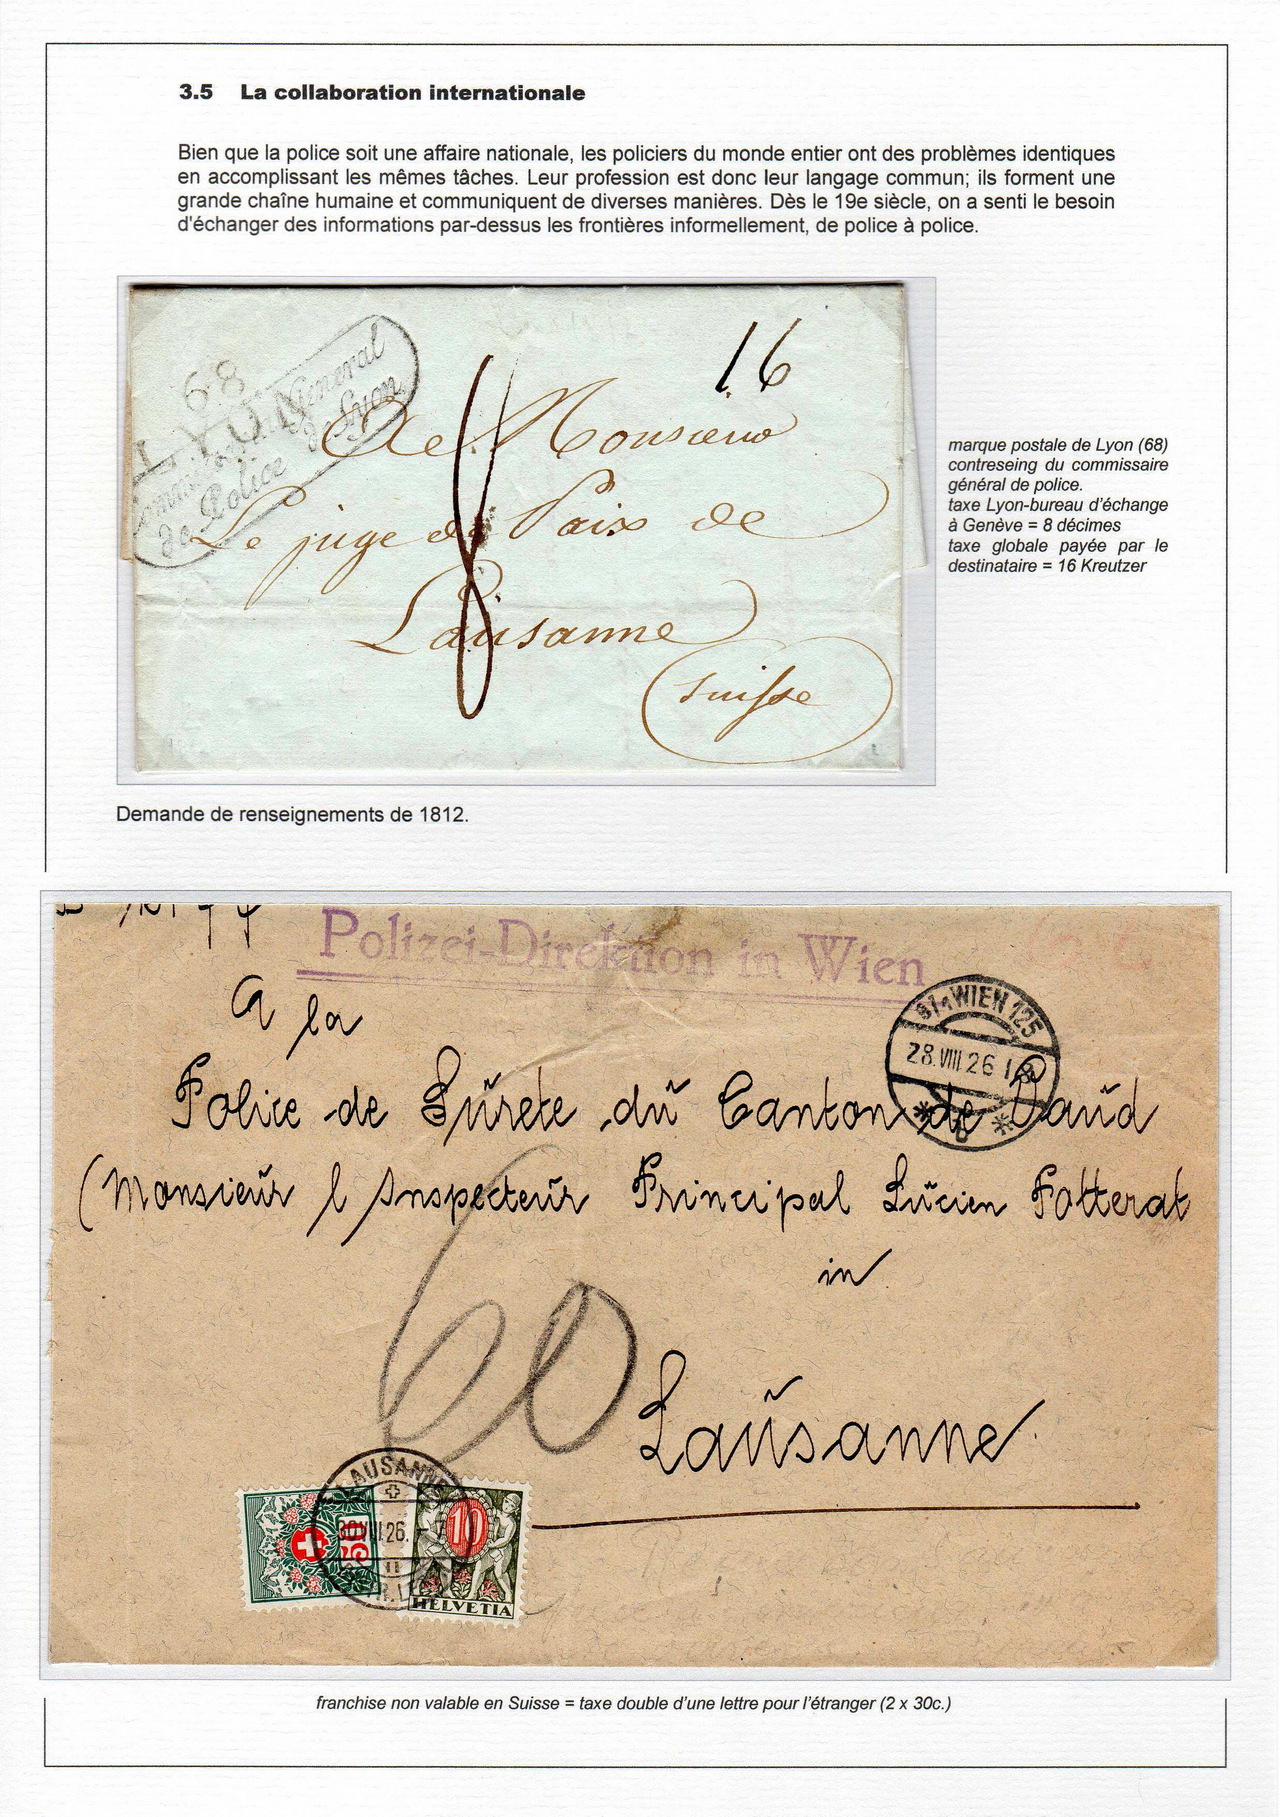 3.5 La collaboration internationale
Bien que la police soit une affaire nationale, les policiers du monde entier ont des problèmes identiques
en accomplissant les mêmes tâches. Leur profession est donc leur langage commun; ils forment une
grande chaîne humaine et communiquent de diverses manières. Dès le 19e siècle, on a senti le besoin
d'échanger des informations par-dessus les frontières informellement, de police à police.
16
68
LYON
General
de Police de Lyon
A Monsieur
Le juge de Paix de
8
Lausanne
Suisse
marque postale de Lyon (68)
contreseing du commissaire
général de police.
taxe Lyon-bureau d'échange
à Genève = 8 décimes
taxe globale payée par le
destinataire = 16 Kreutzer
Demande de renseignements de 1812.
Polizei-Direktion in Wien
A la
9/1 WIEN 125
28.VIII.26
Police de Sûrete du Canton de Vaud
(Monsieur l Inspecteur Principal Lucien Fotterat
in
60
Lausanne
LAUSANNE
30.VIII.26.
10
HELVETIA
franchise non valable en Suisse = taxe double d'une lettre pour l'étranger (2 x 30c.)